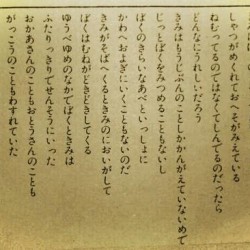 しゃつがめくれておへそがみえている
ねむってるのではなくてしんでるのだったら
どんなにうれしいだろう
きみはもうじぶんのことしかかんがえていないめで
じっとぼくをみつめることもないし
ぼくのきらいなあべといっしょに
かわへおよぎにいくこともないのだ
きみがそばへくるときみのにおいがして
ぼくはむねがどきどきしてくる
ゆうべゆめのなかでぼくときみは
ふたりっきりでせんそうにいった
おかあさんのこともおとうさんのことも
がっこうのこともわすれていた